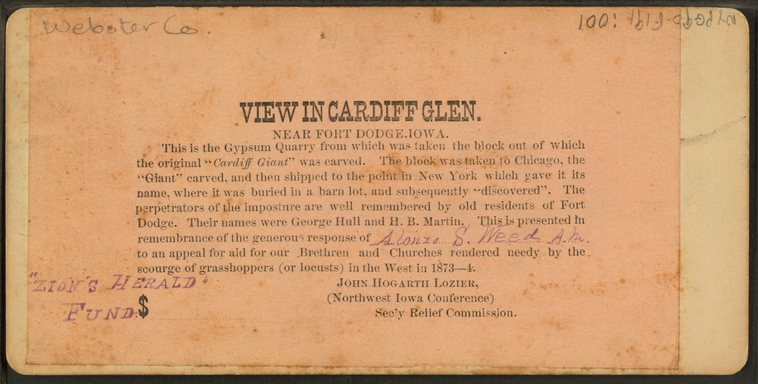 Webster Co.
VIEW IN CARDIFF GLEN.
NEAR FORT DODGE.IOWA.
This is the Gypsum Quarry from which was taken the block out of which
the original "Cardiff Giant" was carved. The block was taken to Chicago, the
"Giant" carved, and then shipped to the point in New York which gave it its
name, where it was buried in a barn lot, and subsequently "discovered". The
perpetrators of the imposture are well remembered by old residents of Fort
Dodge. Their names were George Hull and H. B. Martin. This is presented in
remembrance of the generous response of Alonzo S. Weed A.M.
to an appeal for aid for our Brethren and Churches rendered needy by the
scourge of grasshoppers (or locusts) in the West in 1873—4.
JOHN HOGARTH LOZIER,
(Northwest Iowa Conference)
Sec'y Relief Commission.
"ZION'S HERALD"
FUND. $